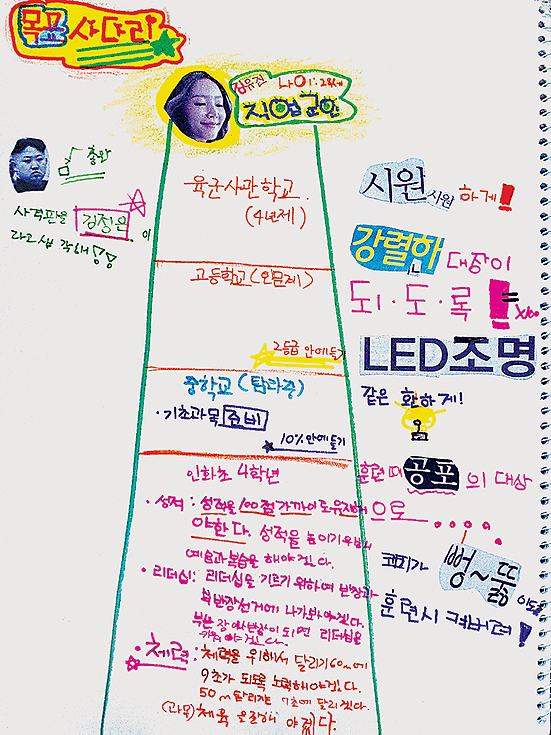 목표 사다리
김유진 나이:28세
직업군인
총알
사격판을 김정은이
라고 생각해!!
육군사관학교
(4년제)
고등학교(인문계)
2등급 안에 들기
중학교(탐라중)
·기초과목 준비
10%안에 들기
인화초 4학년
·성적 : 성적을 100점 가까이로 유지해
야한다. 성적을 높이기 위해
예습과 복습을 해야겠다.
·리더십: 리더십을 기르기 위하여 반장과
부반장선거에 나가봐야겠다.
반장이 되면 리더십을
·체력 : 체력을 위해서 달리기 60m에
9초가 되도록 노력해야겠다.
50m 달리기 9초에 달리겠다.
(과목) 체육 을 잘해 야 겠다.
시원시원 하게!
강렬한 대장이
되·도·록!! X100
LED조명
같은 환하게!
훈련 때 공포의 대상
으로....
뻥~뚫
훈련시 켜버려!